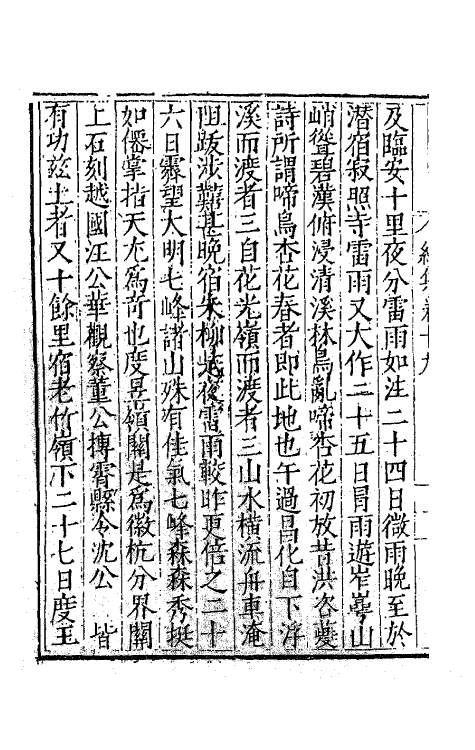 續集卷十九
及臨安十里夜分雷雨如注二十四日微雨晚至於
潛宿寂照寺雷雨又大作二十五日冒雨遊岝崿山
峭聳碧漢俯浸清溪林鳥亂啼杏花初放昔洪咨夔
詩所謂啼鳥杏花春者即此地也午過昌化自下浮
溪而渡者三自花光嶺而渡者三山水橫流舟車淹
阻跋涉難甚晚宿朱柳是夜雷雨較昨更倍之二十
六日霽望大明七峰諸山殊有佳氣七峰森森秀挺
如僊掌指天尤爲奇也度昱嶺關是爲徽杭分界關
上石刻越國汪公華觀察董公摶霄縣令沈公 皆
有功茲土者又十餘里宿老竹嶺下二十七日度王